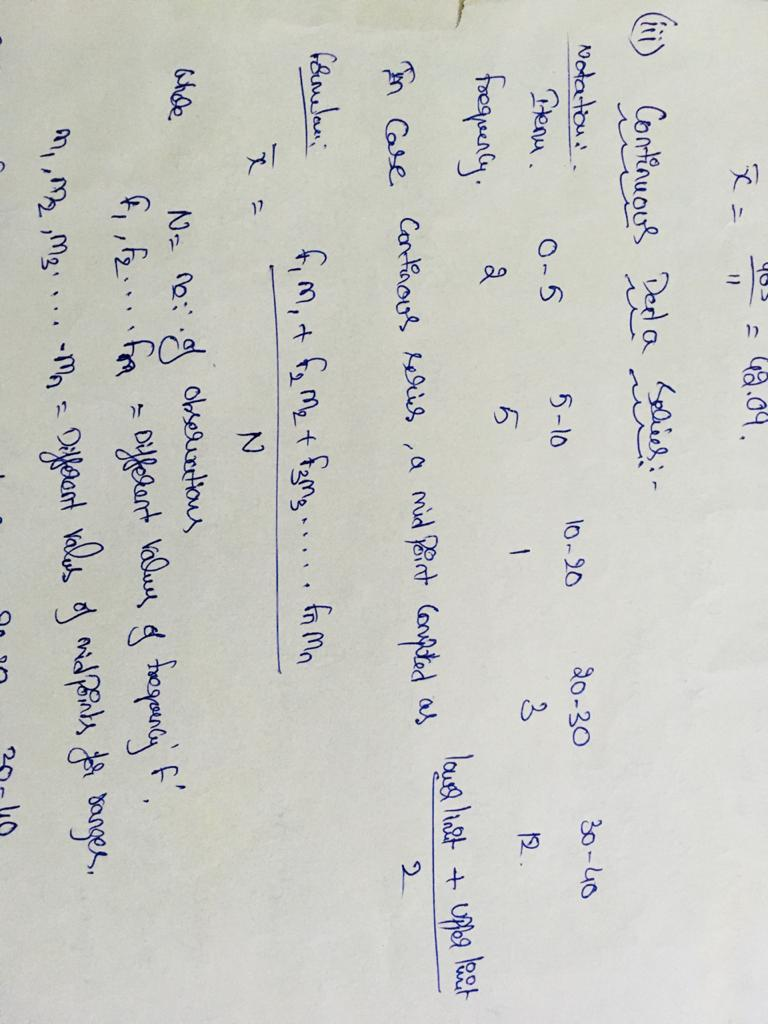 x̄ = /11 = 42.09.
(iii) Continuous Data Series:-
Notation:-
Item. 0-5 5-10 10-20 20-30 30-40
frequency. 2 5 1 3 12.
In Case Continuous series, a mid point Computed as lower limit + Upper limit / 2
formula:
x̄ = f₁m₁ + f₂m₂ + f₃m₃ ..... fnmn / N
where N = no: of observations
f₁, f₂ .... fn = Different values of frequency 'f'.
m₁, m₂, m₃ .... -mn = Different values of midpoints for ranges.
30-40